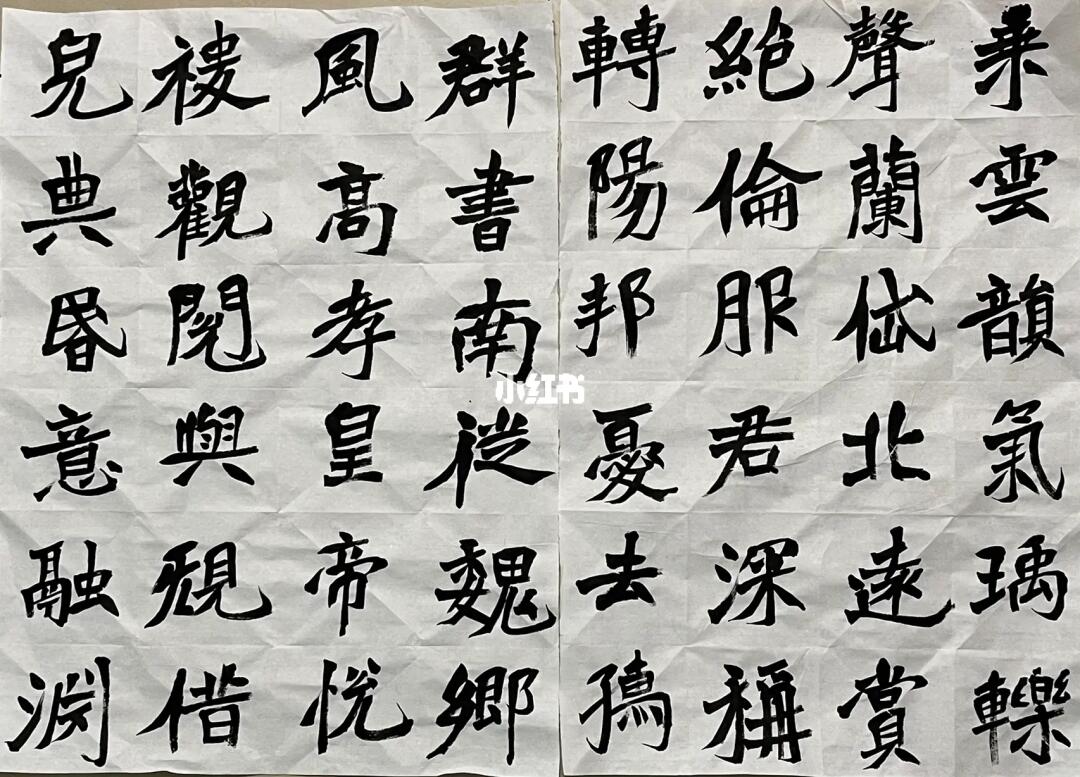 乗雲韻氣瑀轢
聲蘭岱北遠賞
絶倫服君深稱
轉陽邦憂去
群書南從魏鄉
風高孝皇帝悅
觀閲與借
皃典昬意融淵
小红书